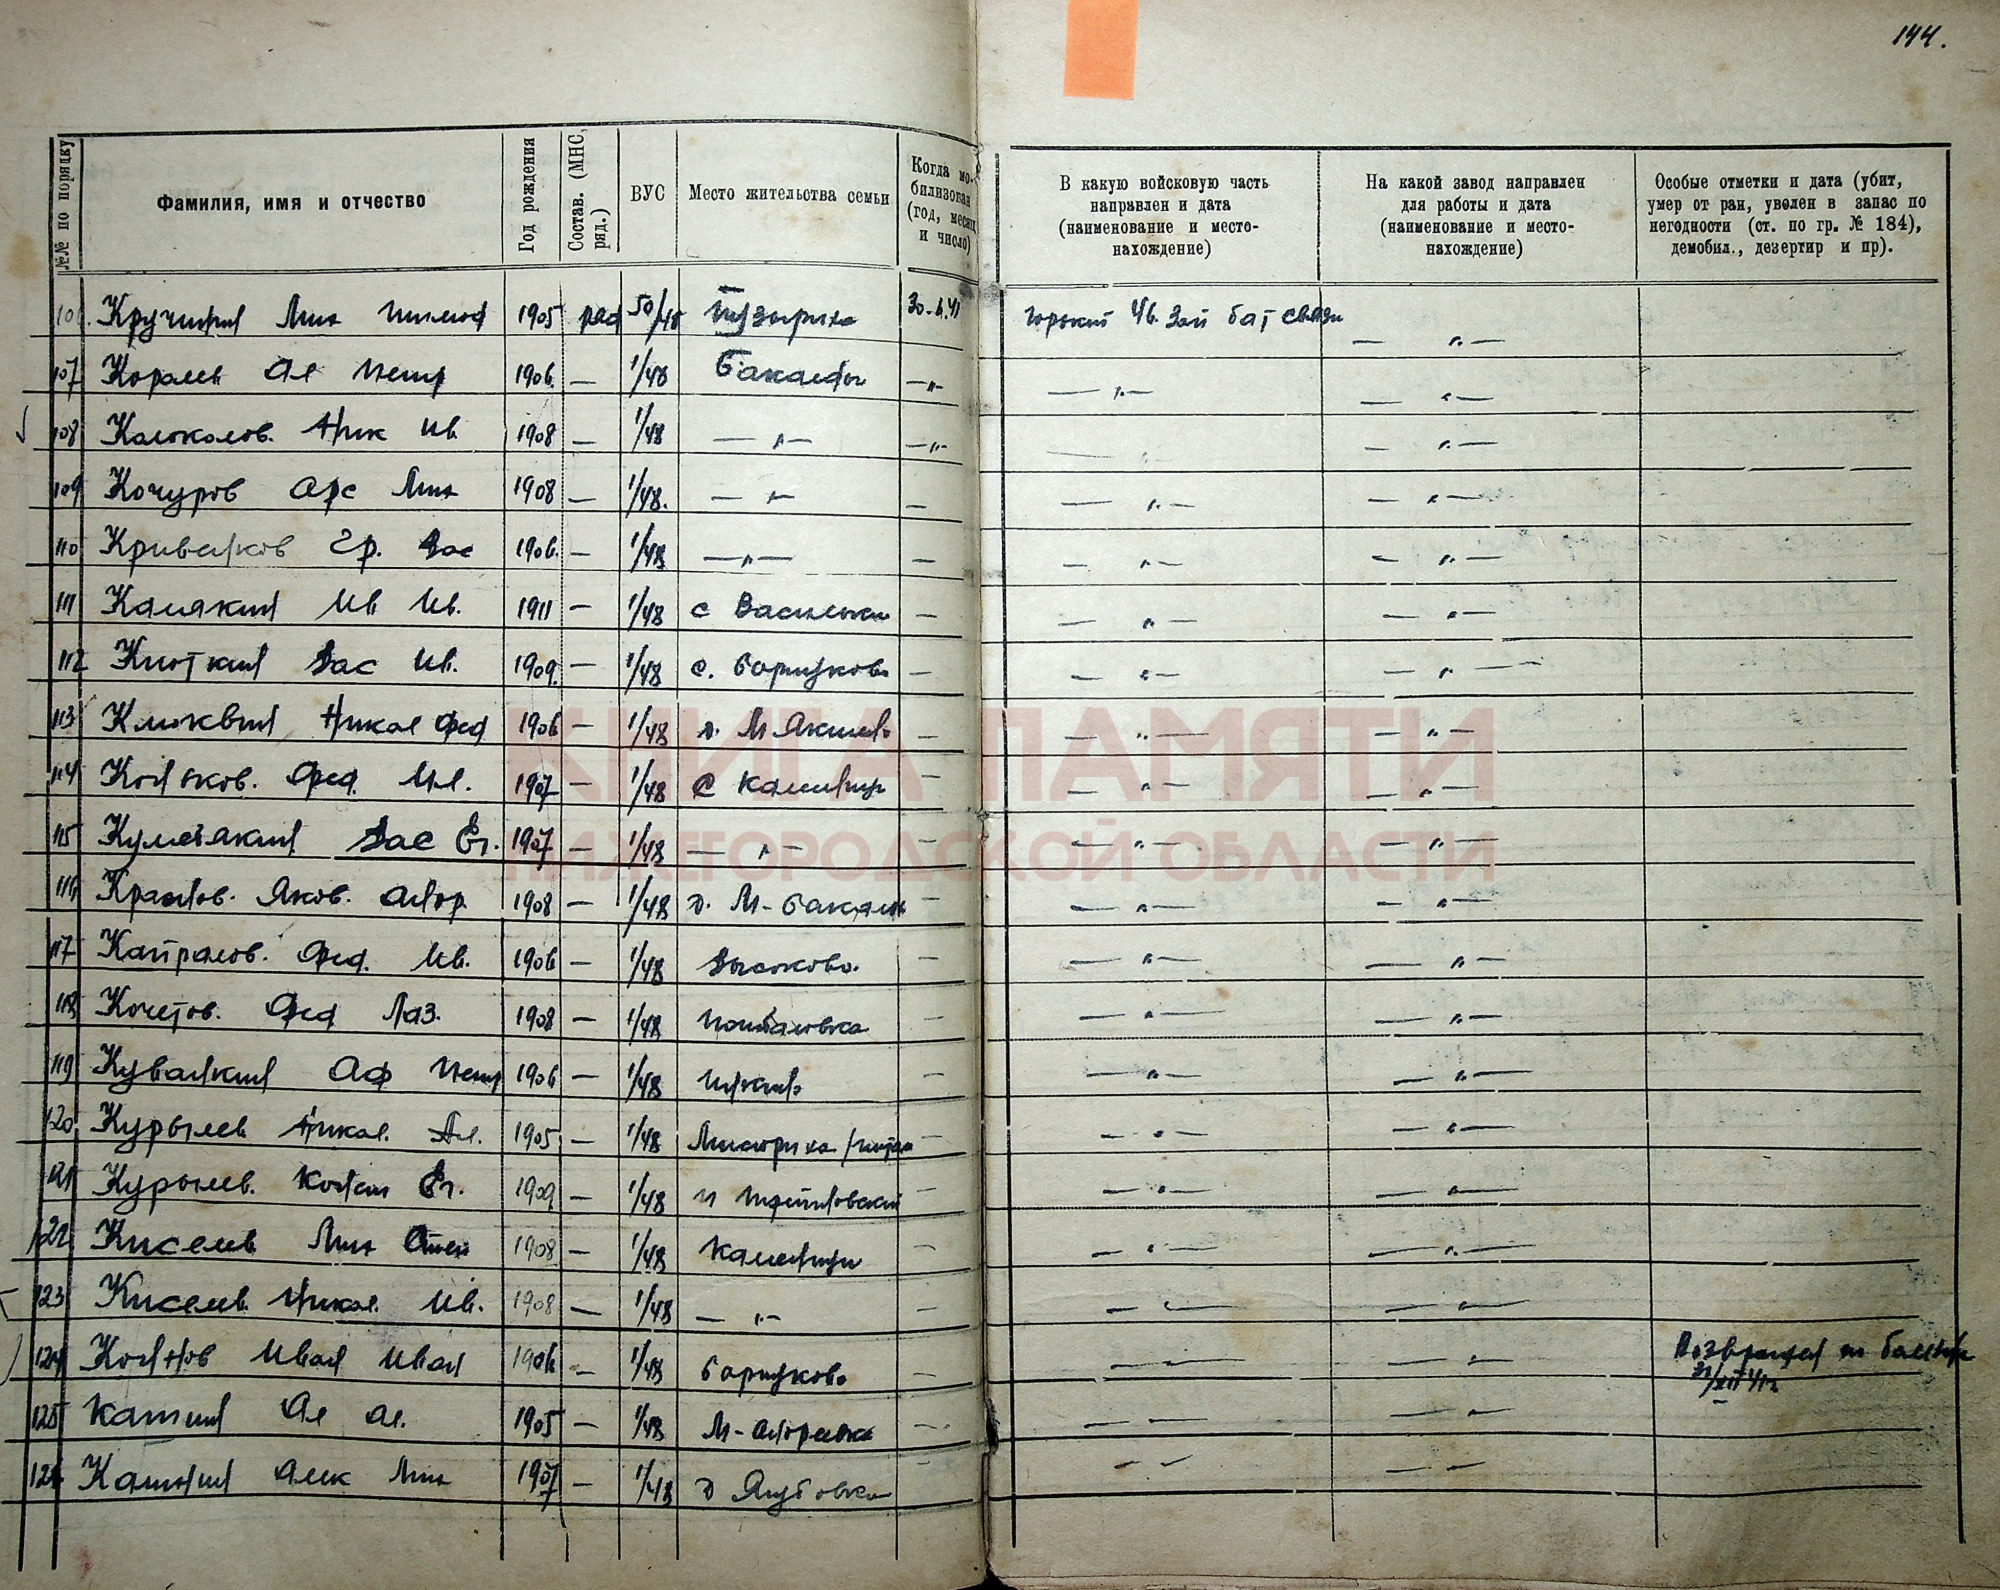 144.
№№ по порядку
Фамилия, имя и отчество
Год рождения
Состав. (МНС, ряд.)
ВУС
Место жительства семьи
Когда мобилизован (год, месяц и число)
В какую войсковую часть
направлен и дата
(наименование и место-
нахождение)
На какой завод направлен
для работы и дата
(наименование и место-
нахождение)
Особые отметки и дата (убит,
умер от ран, уволен в запас по
негодности (ст. по гр. № 184),
демобил., дезертир и пр).
Кручинин Мих 1905 ряд 50/48 30.6.41 Горький Зап бат связи — „ —
107 Королев Ал Петр 1906 — 1/48 Бакалды — „ — „ — — „ —
108 Колоколов. Ник Ив 1908 — 1/48 — „ — — „ — — „ —
109 Кочуров Арс Мих 1908 — 1/48. — „ — — — „ — — „ —
110 Гр. Вас 1906. — 1/48 — „ — — — „ — — „ —
111 Калякин Ив Ив. 1911 — 1/48 с Васильки — — „ — — „ —
112 Вас Ив. 1909. — 1/48 с. Борнуково — — „ — — „ —
113 Клюквин Никол Фед 1906 — 1/48 д. М Якшень — — „ — — „ —
114 Коньков. Фед. 1907 — 1/48 с — — „ — — „ —
115 Кулемякин Вас Ег. 1907 — 1/48 — „ — — — „ — — „ —
116 Яков. 1908 — 1/48 д. М-Бакалды — — „ — — „ —
117 Кайралов. Фед. Ив. 1906 — 1/48 Высоково. — — „ — — „ —
118 Кочетов. Фед Лаз. 1908 — 1/48 — — „ — — „ —
119 Кувакин Аф Петр 1906 — 1/48 — — „ — — „ —
120. Курылев Никол. Ал. 1905 — 1/48 — — „ — — „ —
121 Курылев. Ег. 1909 — 1/48 — — „ — — „ —
122 Киселев Мих Степ 1908 — 1/48 Каменищи — — „ — — „ —
123 Киселев. Никол. Ив. 1908 — 1/48 — „ — — — „ — — „ —
124 Коннов Иван Иван 1906 — 1/48 Борнуково — — „ — — „ — Возвращен по болезни
31/XII 41г
125 Катин Ал Ал. 1905 — 1/48 М-Андреевка — — „ — — „ —
126 Алек Мих 1907 — 1/48 д Якубовка — „ — — „ —
КНИГА ПАМЯТИ
НИЖЕГОРОДСКОЙ ОБЛАСТИ